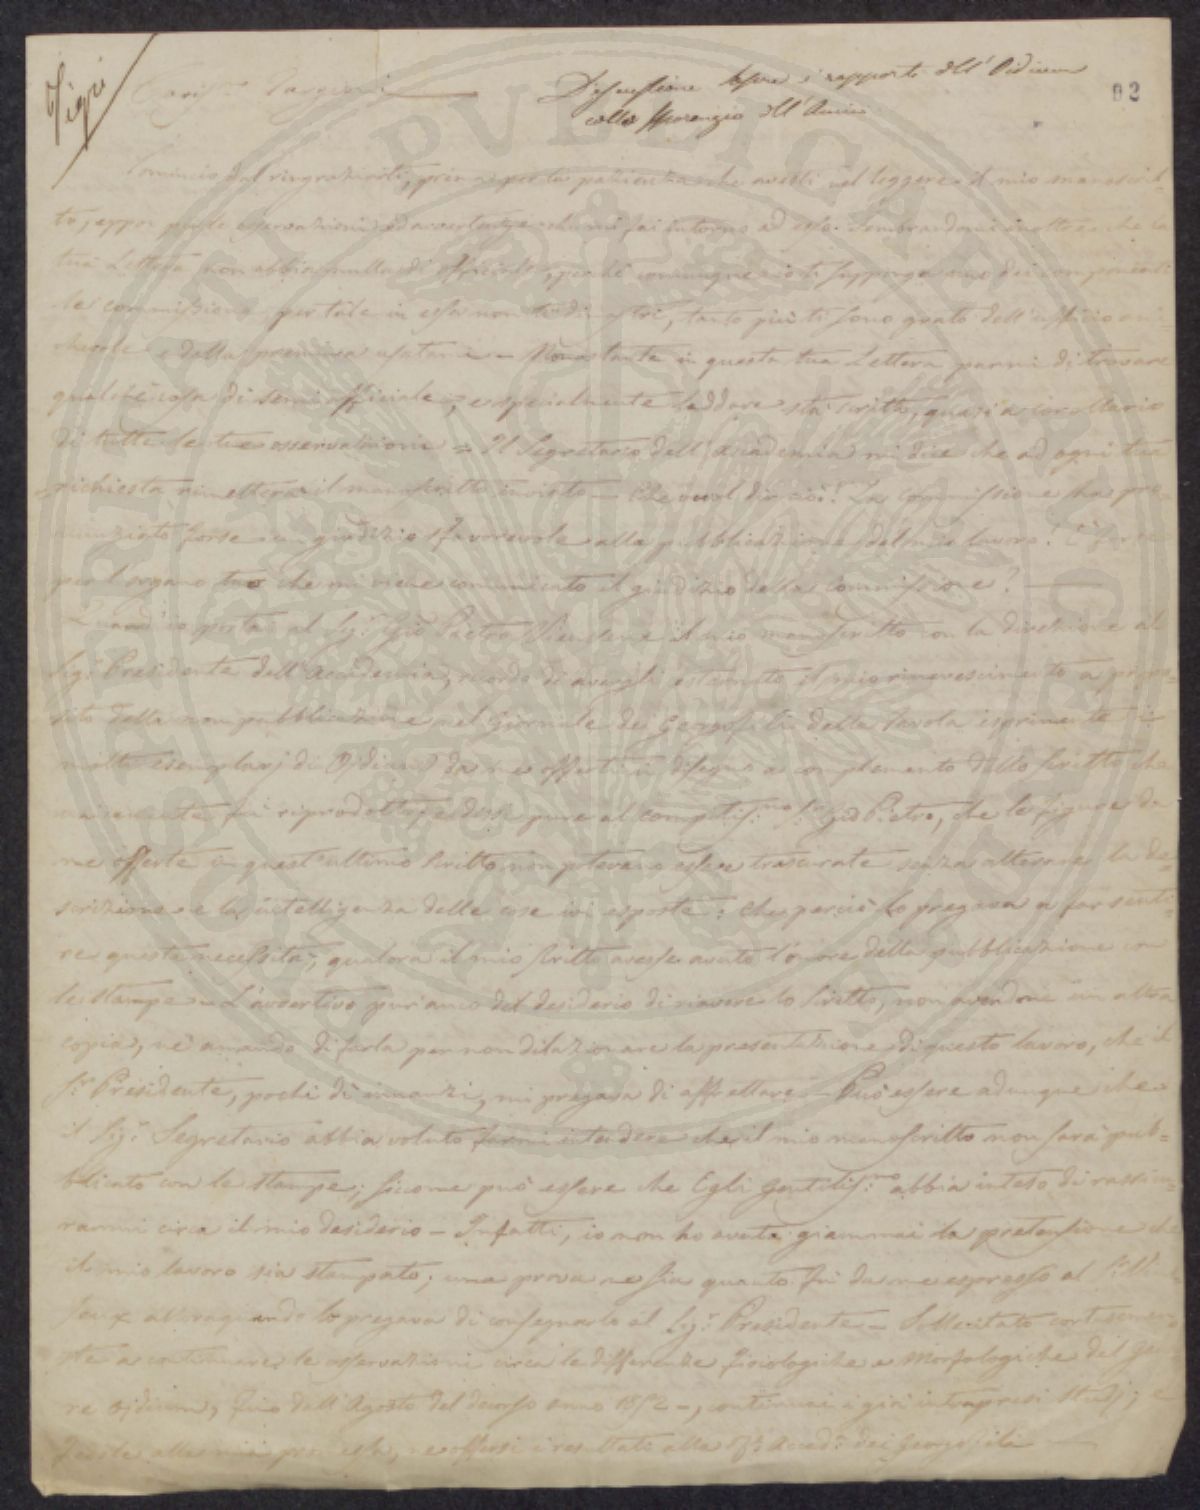 Tigri
Caris.mo Targioni
Discussione sopra i rapporti dell'Oidium
collo sporangio dell'Amici
92
Comincio dal ringraziarti, prima per la pazienza che avesti nel leggere il mio manoscrit-
to, eppoi per le osservazioni ed avvertenze che mi fai intorno ad esso. Sembrandomi inoltre che la
tua Lettera non abbia nulla di officiale, perchè comunque io ti supponga uno dei componenti
la commissione per tale in essa non ti dimostri, tanto più ti sono grato dell'ufficio ami-
chevole e della premura usatami = Nonostante in questa tua Lettera parmi di trovare
qualche cosa di semiofficiale, e specialmente laddove sta scritto, quasi a corollario
di tutte le tue osservazioni = Il Segretario dell'Accademia mi dice che ad ogni tua
richiesta rimetterà il manoscritto inviato = Che vuol dir ciò? La Commissione ha pro-
nunziato forse un giudizio sfavorevole alla pubblicazione del mio lavoro? È forse
per l'organo tuo che mi viene comunicato il giudizio della Commissione?
Quand'io portai al Sig.r Gio Pietro Vieusseux il mio manoscritto con la direzione al
Sig.r Presidente dell'Accademia, ricordo di avergli esternato il mio rincrescimento a propo-
sito della non pubblicazione nel Giornale dei Georgofili della Tavola esprimente i
molti esemplari di Oidium da me offerti in disegno a complemento dello scritto che
unicamente fu riprodotto, e dissi pure al compitis.mo S.r Gio Pietro, che le figure da
me offerte in quest'ultimo scritto non potevano essere trascurate senza alterare la de-
scrizione e la intelligenza delle cose ivi esposte: che perciò lo pregava a far senti-
re questa necessità, qualora il mio scritto avesse avuto l'onore della pubblicazione con
le stampe = L'avvertivo pur anco del desiderio di riavere lo scritto, non avendone un'altra
copia, nè amando di farla per non dilazionare la presentazione di questo lavoro, che il
S.r Presidente, pochi dì innanzi, mi pregava di affrettare = Può essere adunque che
il Sig.r Segretario abbia voluto farmi intendere che il mio manoscritto non sarà pub-
blicato con le stampe; siccome può essere che Egli gentilis.mo abbia inteso di rassicu-
rarmi circa il mio desiderio = Infatti, io non ho avuta giammai la pretensione che
il mio lavoro sia stampato; una prova ne sia quanto fu da me espresso al S.r Vieus-
seux allora quando lo pregava di consegnarlo al Sig.r Presidente = Sollecitato cortesemen-
te a continuare le osservazioni circa le differenze fisiologiche e Morfologiche del gene-
re Oidium, fino dall'Agosto del decorso anno 1852 =, continuai i già intrapresi studj; e
alla mia promessa, ne offersi i resultati alla R. Accad.a dei Georgofili